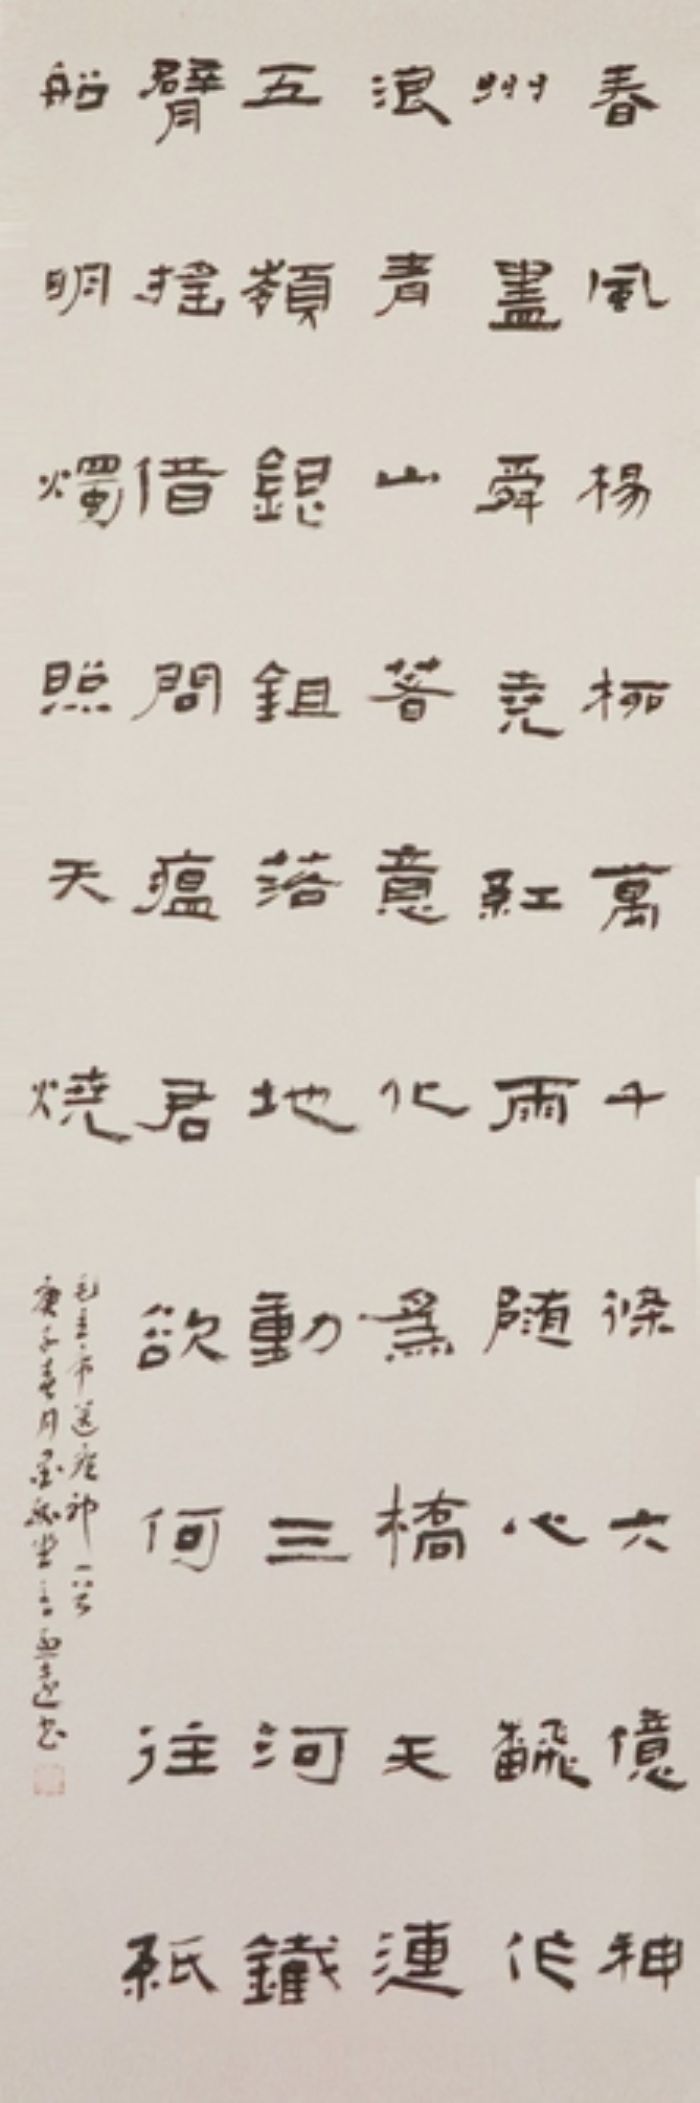 春風楊柳萬千條六億神
州盡舜堯紅雨随心飜作
浪青山著意化爲橋天連
五嶺銀鉏落地動三河鐵
臂搖借問瘟君欲何往紙
船明燭照天燒
毛主席送瘟神一首
庚子春月墨堂遠書